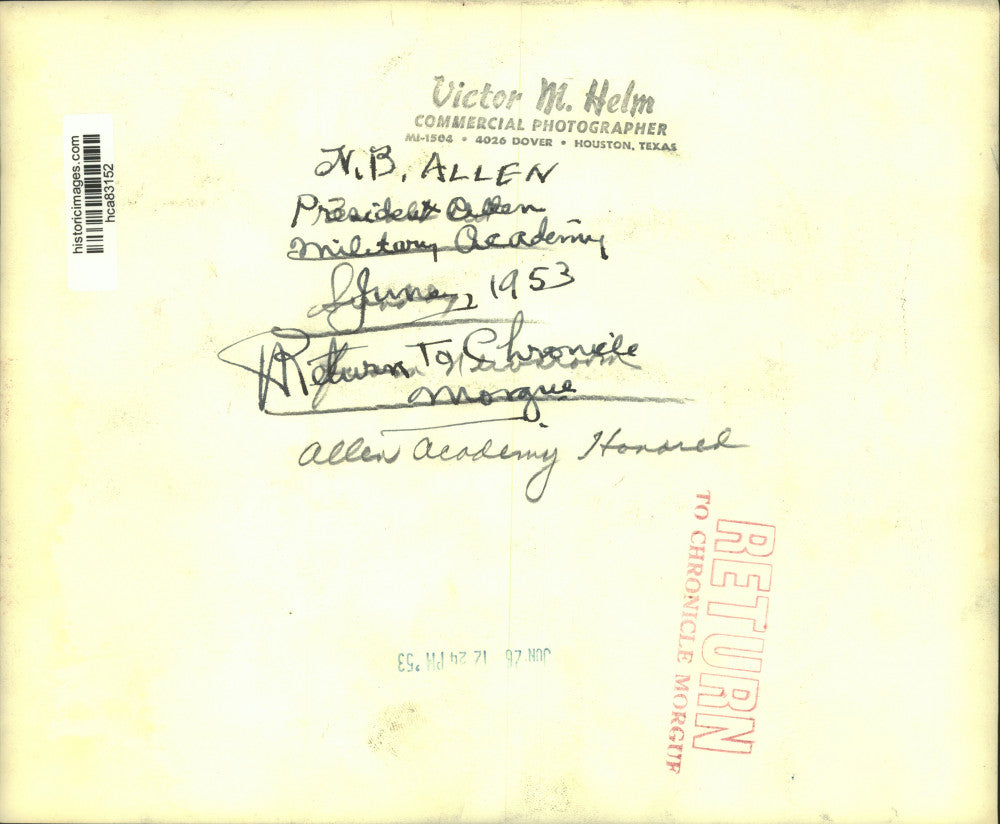 Victor M. Helm
COMMERCIAL PHOTOGRAPHER
MI-1504 • 4026 DOVER • HOUSTON, TEXAS
historicimages.com
hca83152
N.B. ALLEN
President Allen
Military Academy
June, 1953
Return To Chronicle
Morgue
Allen Academy Honored
RETURN
TO CHRONICLE MORGUE
JUN 26 12 24 PM '53